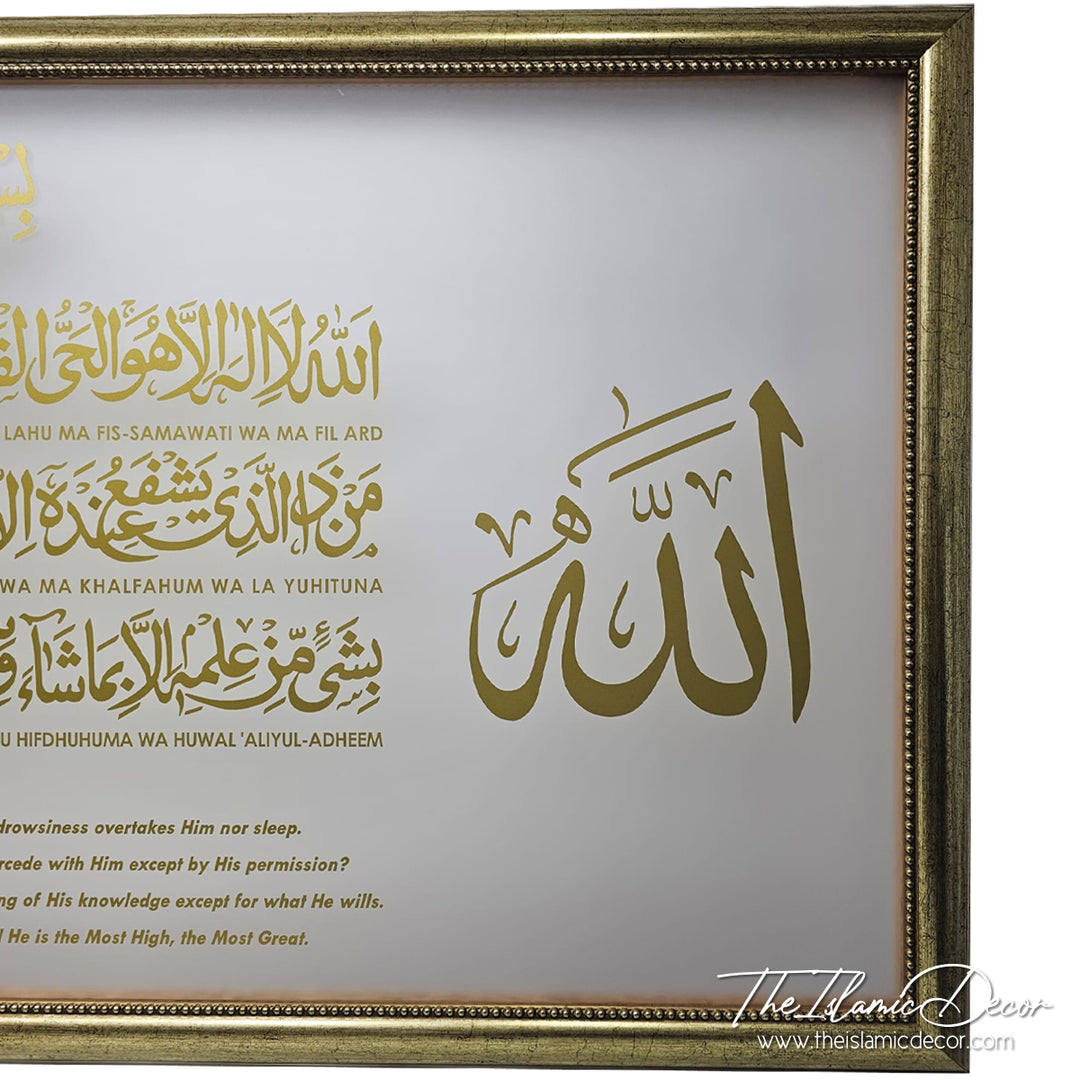 اَللّٰهُ لَا اِلٰهَ اِلَّا هُوَ الْحَىُّ
LAHU MA FIS-SAMAWATI WA MA FIL ARD
مَنْ ذَا الَّذِى يَشْفَعُ عِنْدَهُ
WA MA KHALFAHUM WA LA YUHITUNA
بِشَىْءٍ مِّنْ عِلْمِهٖ اِلَّا بِمَا شَآءَ
HIFDHUHUMA WA HUWAL 'ALIYUL-ADHEEM
اللّٰه
drowsiness overtakes Him nor sleep.
with Him except by His permission?
of His knowledge except for what He wills.
He is the Most High, the Most Great.
TheIslamicDecor
www.theislamicdecor.com